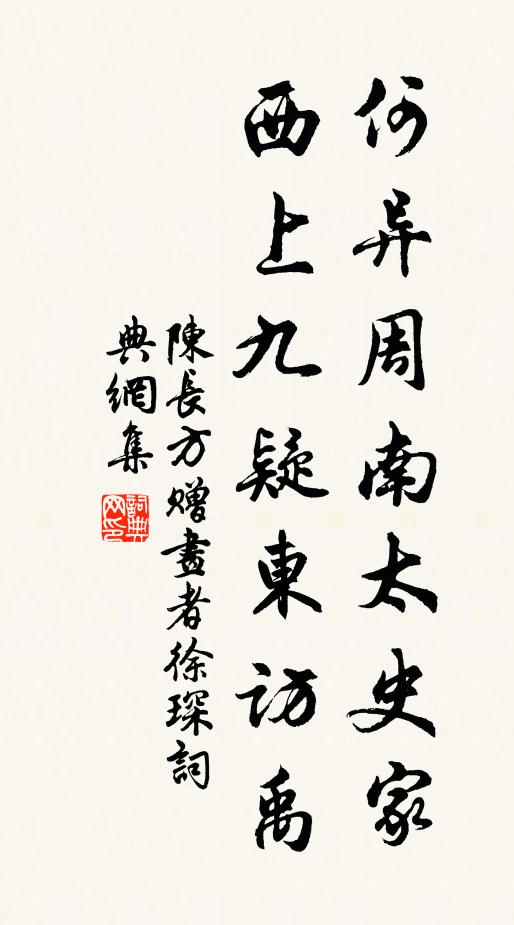 何异周南太史家
西上九疑東訪禹
陳長方赠畫者徐琛詞
典網集
詞典网印